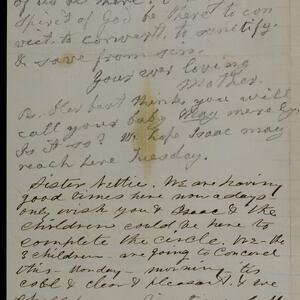 of us be there.
spirit of God be there to con
vict, to convert, to sanctify,
& save from sin.
Your ever loving
Mother.
Ps. Herbert thinks you will
call your baby May merely
Is it so? We hope Isaac may
reach here Tuesday.
Sister Nettie, We are having
good times here now a days
only wish you & Isaac & the
children could be here to
complete the circle. We - the
3 children - are going to Concord
this - Monday - morning, tis
cool & clear & pleasant. I & Eve